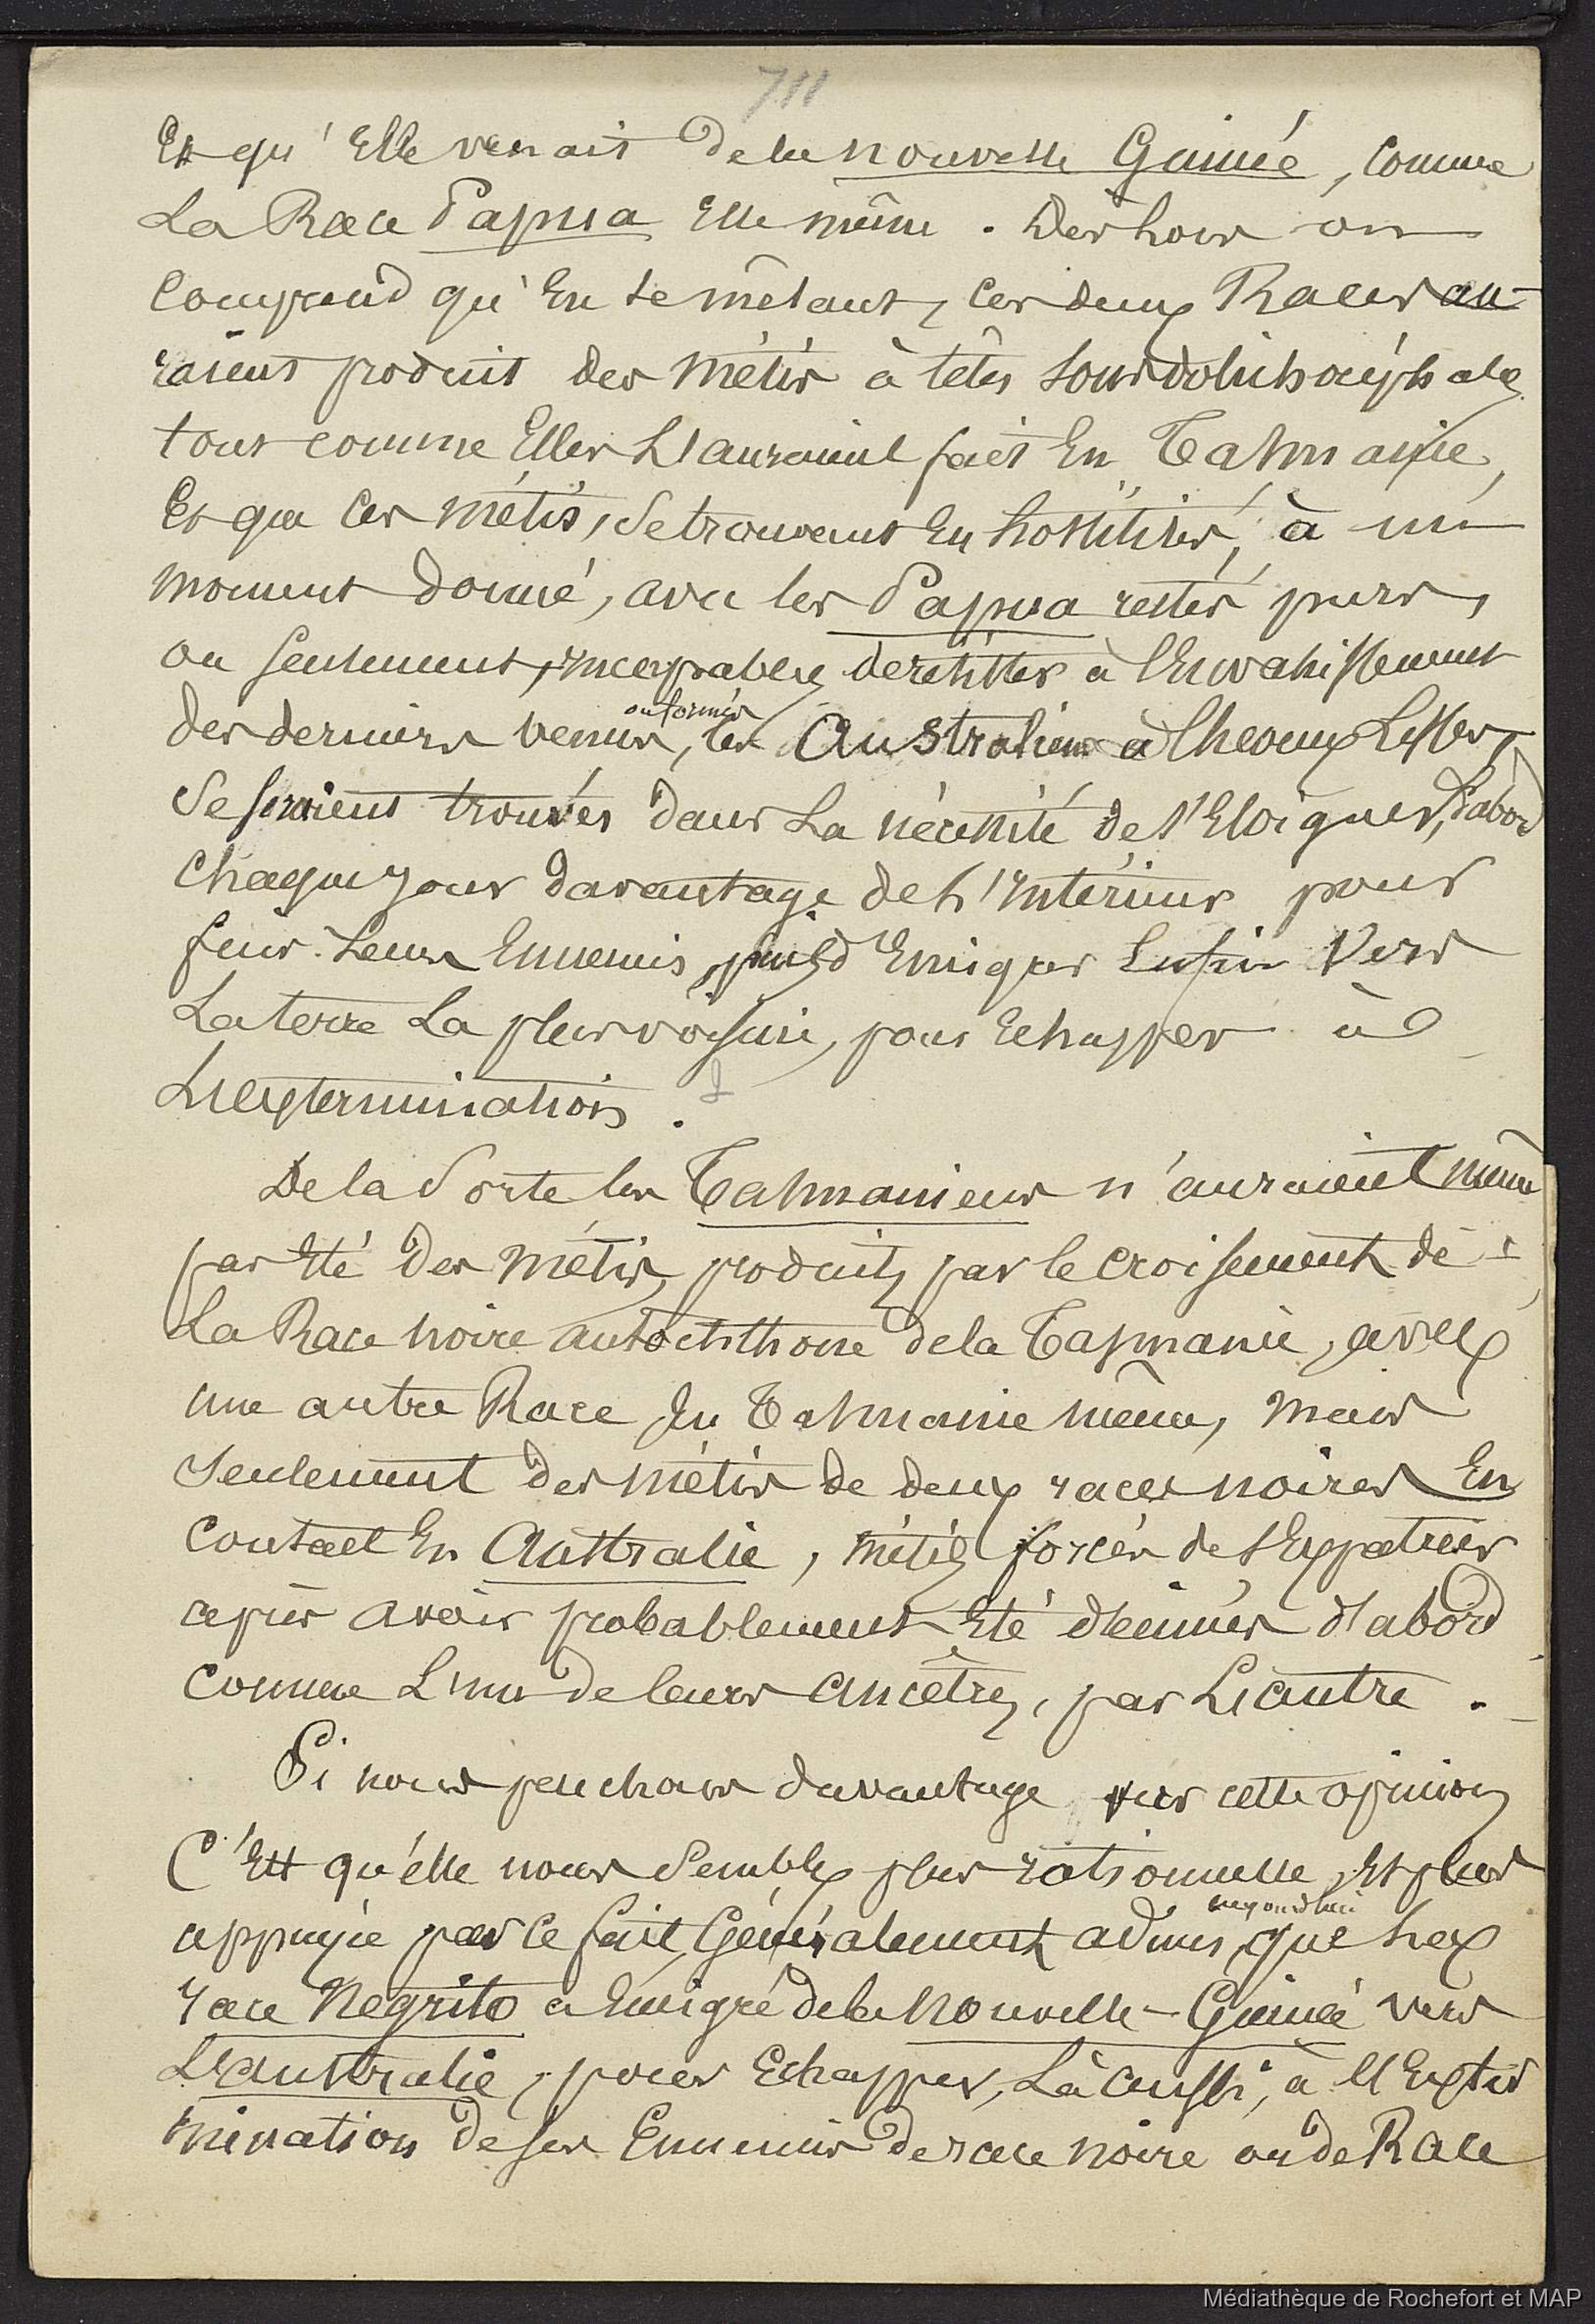 711
Et qu'Elle venait de la nouvelle Guinée, comme
La Race Papua Elle même. Dès lors on
comprend qu'En se mêlant, ces deux Races au-
raient produit des Métis à têtes sous dolichocéphales
tout comme Elles L'auraient fait En Tasmanie,
Et que ces métis, se trouvant En hostilités, à un
moment donné, avec les Papua restés purs,
ou seulement, incapables de résister à l'Envahissement
des derniers venus, ou formés les Australiens à Cheveux Lisses,
Se seraient trouvés dans La nécessité de s'Eloigner, d'abord
chaque jour davantage de L'intérieur pour
fuir Leurs Ennemis, puis d'Emigrer Enfin Vers
La terre La plus voisine, pour Echapper à
L'extermination.
De la Sorte les Tasmaniens n'auraient même
pas Eté Des Métis, produits par le croisement de
La Race noire autochthone de la Tasmanie, avec
une autre Race En Tasmanie même, mais
seulement des métis de deux races noires En
contact En Australie, métis forcés de s'Expatrier
après avoir probablement Eté décimés d'abord
comme L'un de leurs ancêtres, par L'autre.
Si nous penchons davantage vers cette opinion
C'Est qu'elle nous Semble plus rationnelle, Et plus
appuyée par ce fait, Généralement admis aujourd'hui, que La
race Negrito a Emigré de la Nouvelle-Guinée vers
L'australie, pour Echapper, Là aussi, à l'Exter
mination de ses Ennemis de race noire ou de Race
Médiathèque de Rochefort et MAP